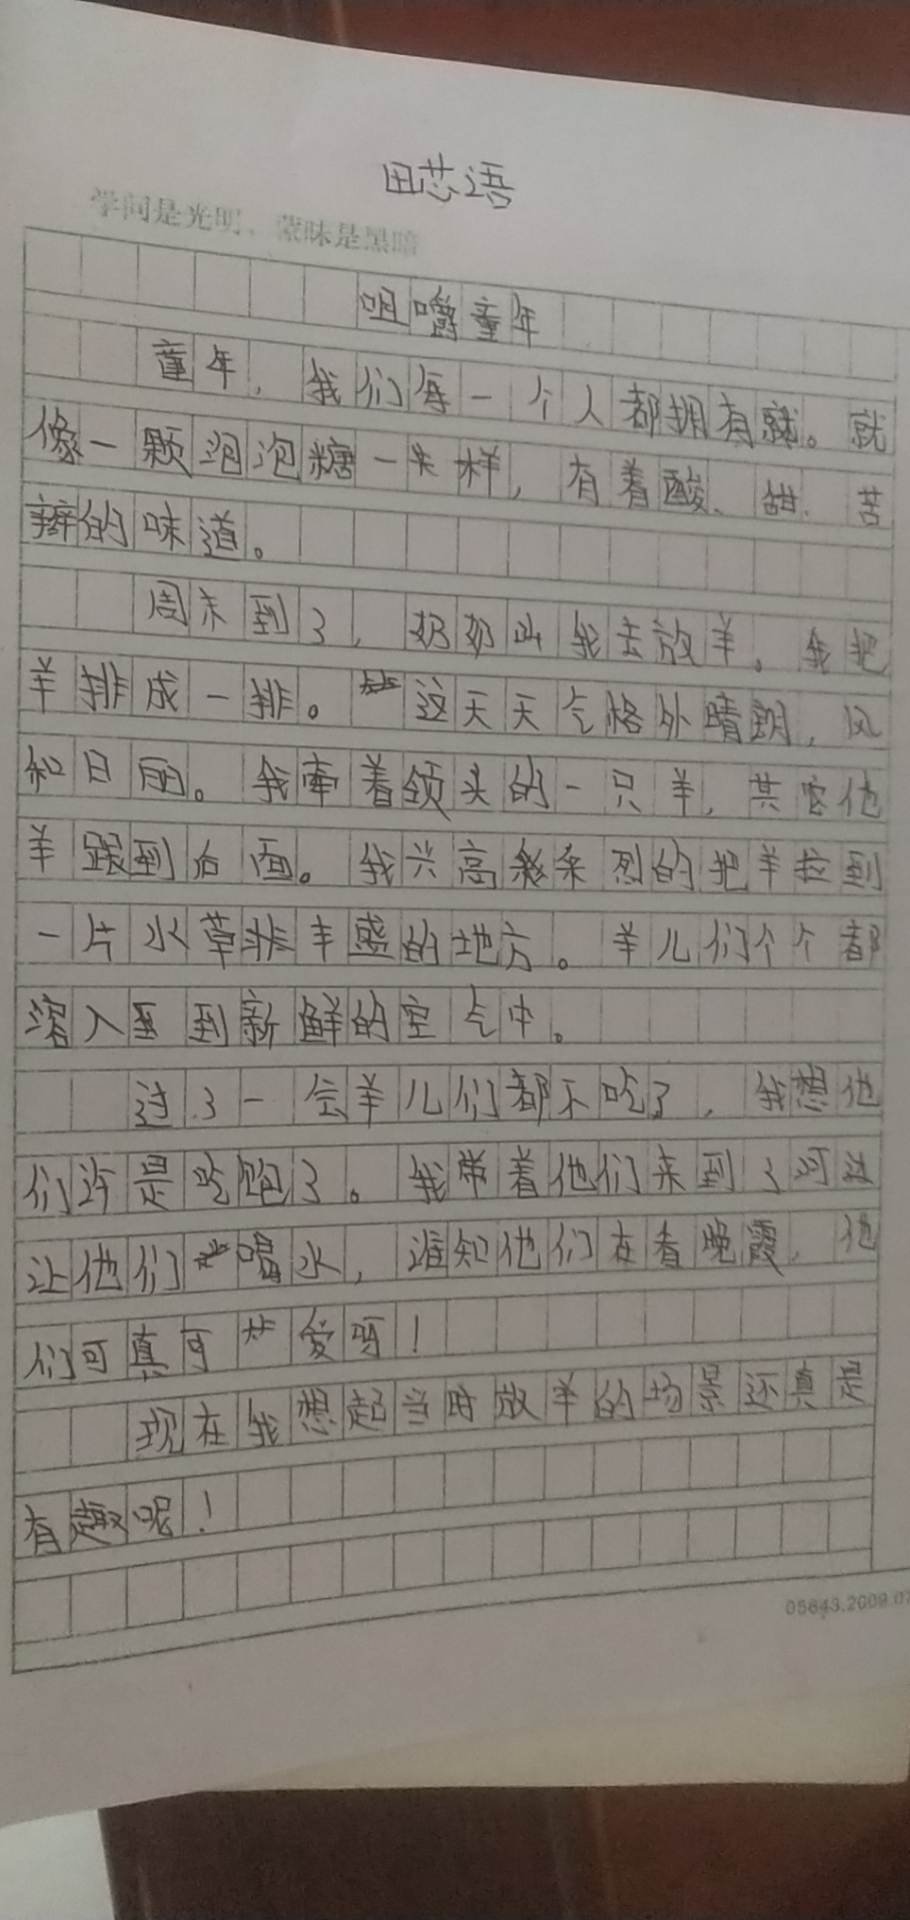 田芯语
学问是光明、蒙昧是黑暗
咀嚼童年
童年，我们每一个人都拥有。就
像一颗泡泡糖一样，有着酸、甜、苦
辣的味道。
周末到了，奶奶叫我去放羊。我把
羊排成一排。这天天气格外晴朗，风
和日丽。我牵着领头的一只羊，其它
羊跟到后面。我兴高彩烈的把羊拉到
一片水草丰盛的地方。羊儿们个个都
溶入到新鲜的空气中。
过了一会羊儿们都不吃了，我想他
们许是吃饱了。我带着他们来到了河边
让他们喝水，谁知他们在看晚霞，他
们可真可爱呀！
现在我想起当时放羊的场景还真是
有趣呢！
05643.2009.07